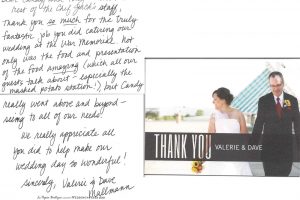 rest of the Chef Jack's staff,
Thank you so much for the truly
fantastic job you did catering our
wedding at the War Memorial. Not
only was the food and presentation
of the food amazing (which all our
guests talk about - especially the
mashed potato station!) but Candy
really went above and beyond -
seeing to all of our needs.
We really appreciate all
you did to help make our
wedding day so wonderful!
Sincerely, Valerie & Dave
Mallmann
THANK YOU
VALERIE & DAVE